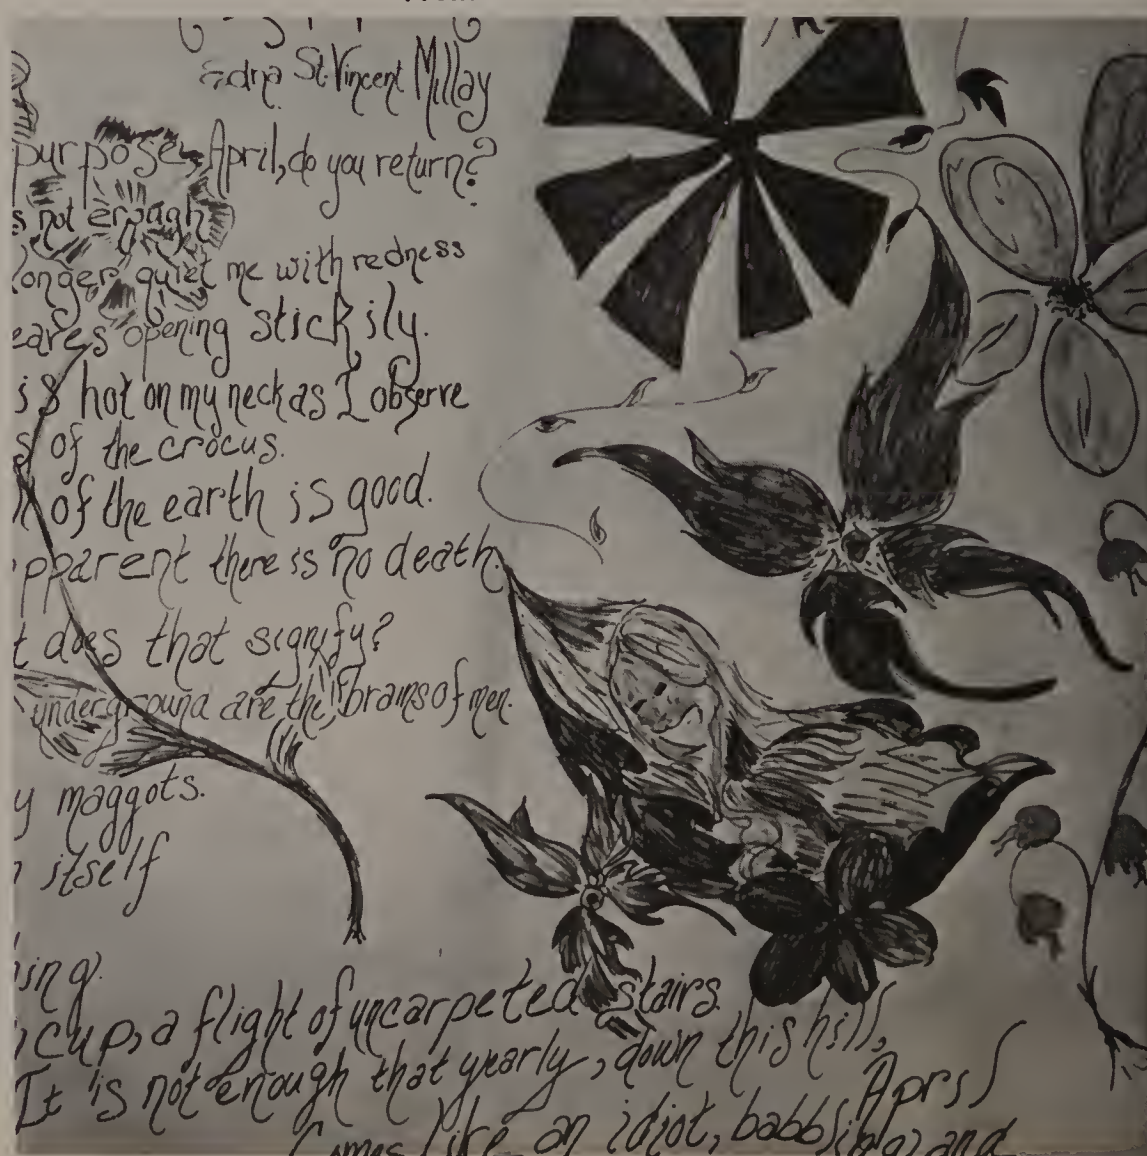 Edna St. Vincent Millay
purpose, April, do you return?
s not enough
longer quiet me with redness
eares opening stickily.
is hot on my neck as I observe
s of the crocus.
of the earth is good.
pparent there is no death.
t does that signify?
underground are the brains of men.
y maggots.
itself
ing.
cup, a flight of uncarpeted stairs.
It is not enough that yearly, down this hill,
April
Comes like an idiot, babbling and